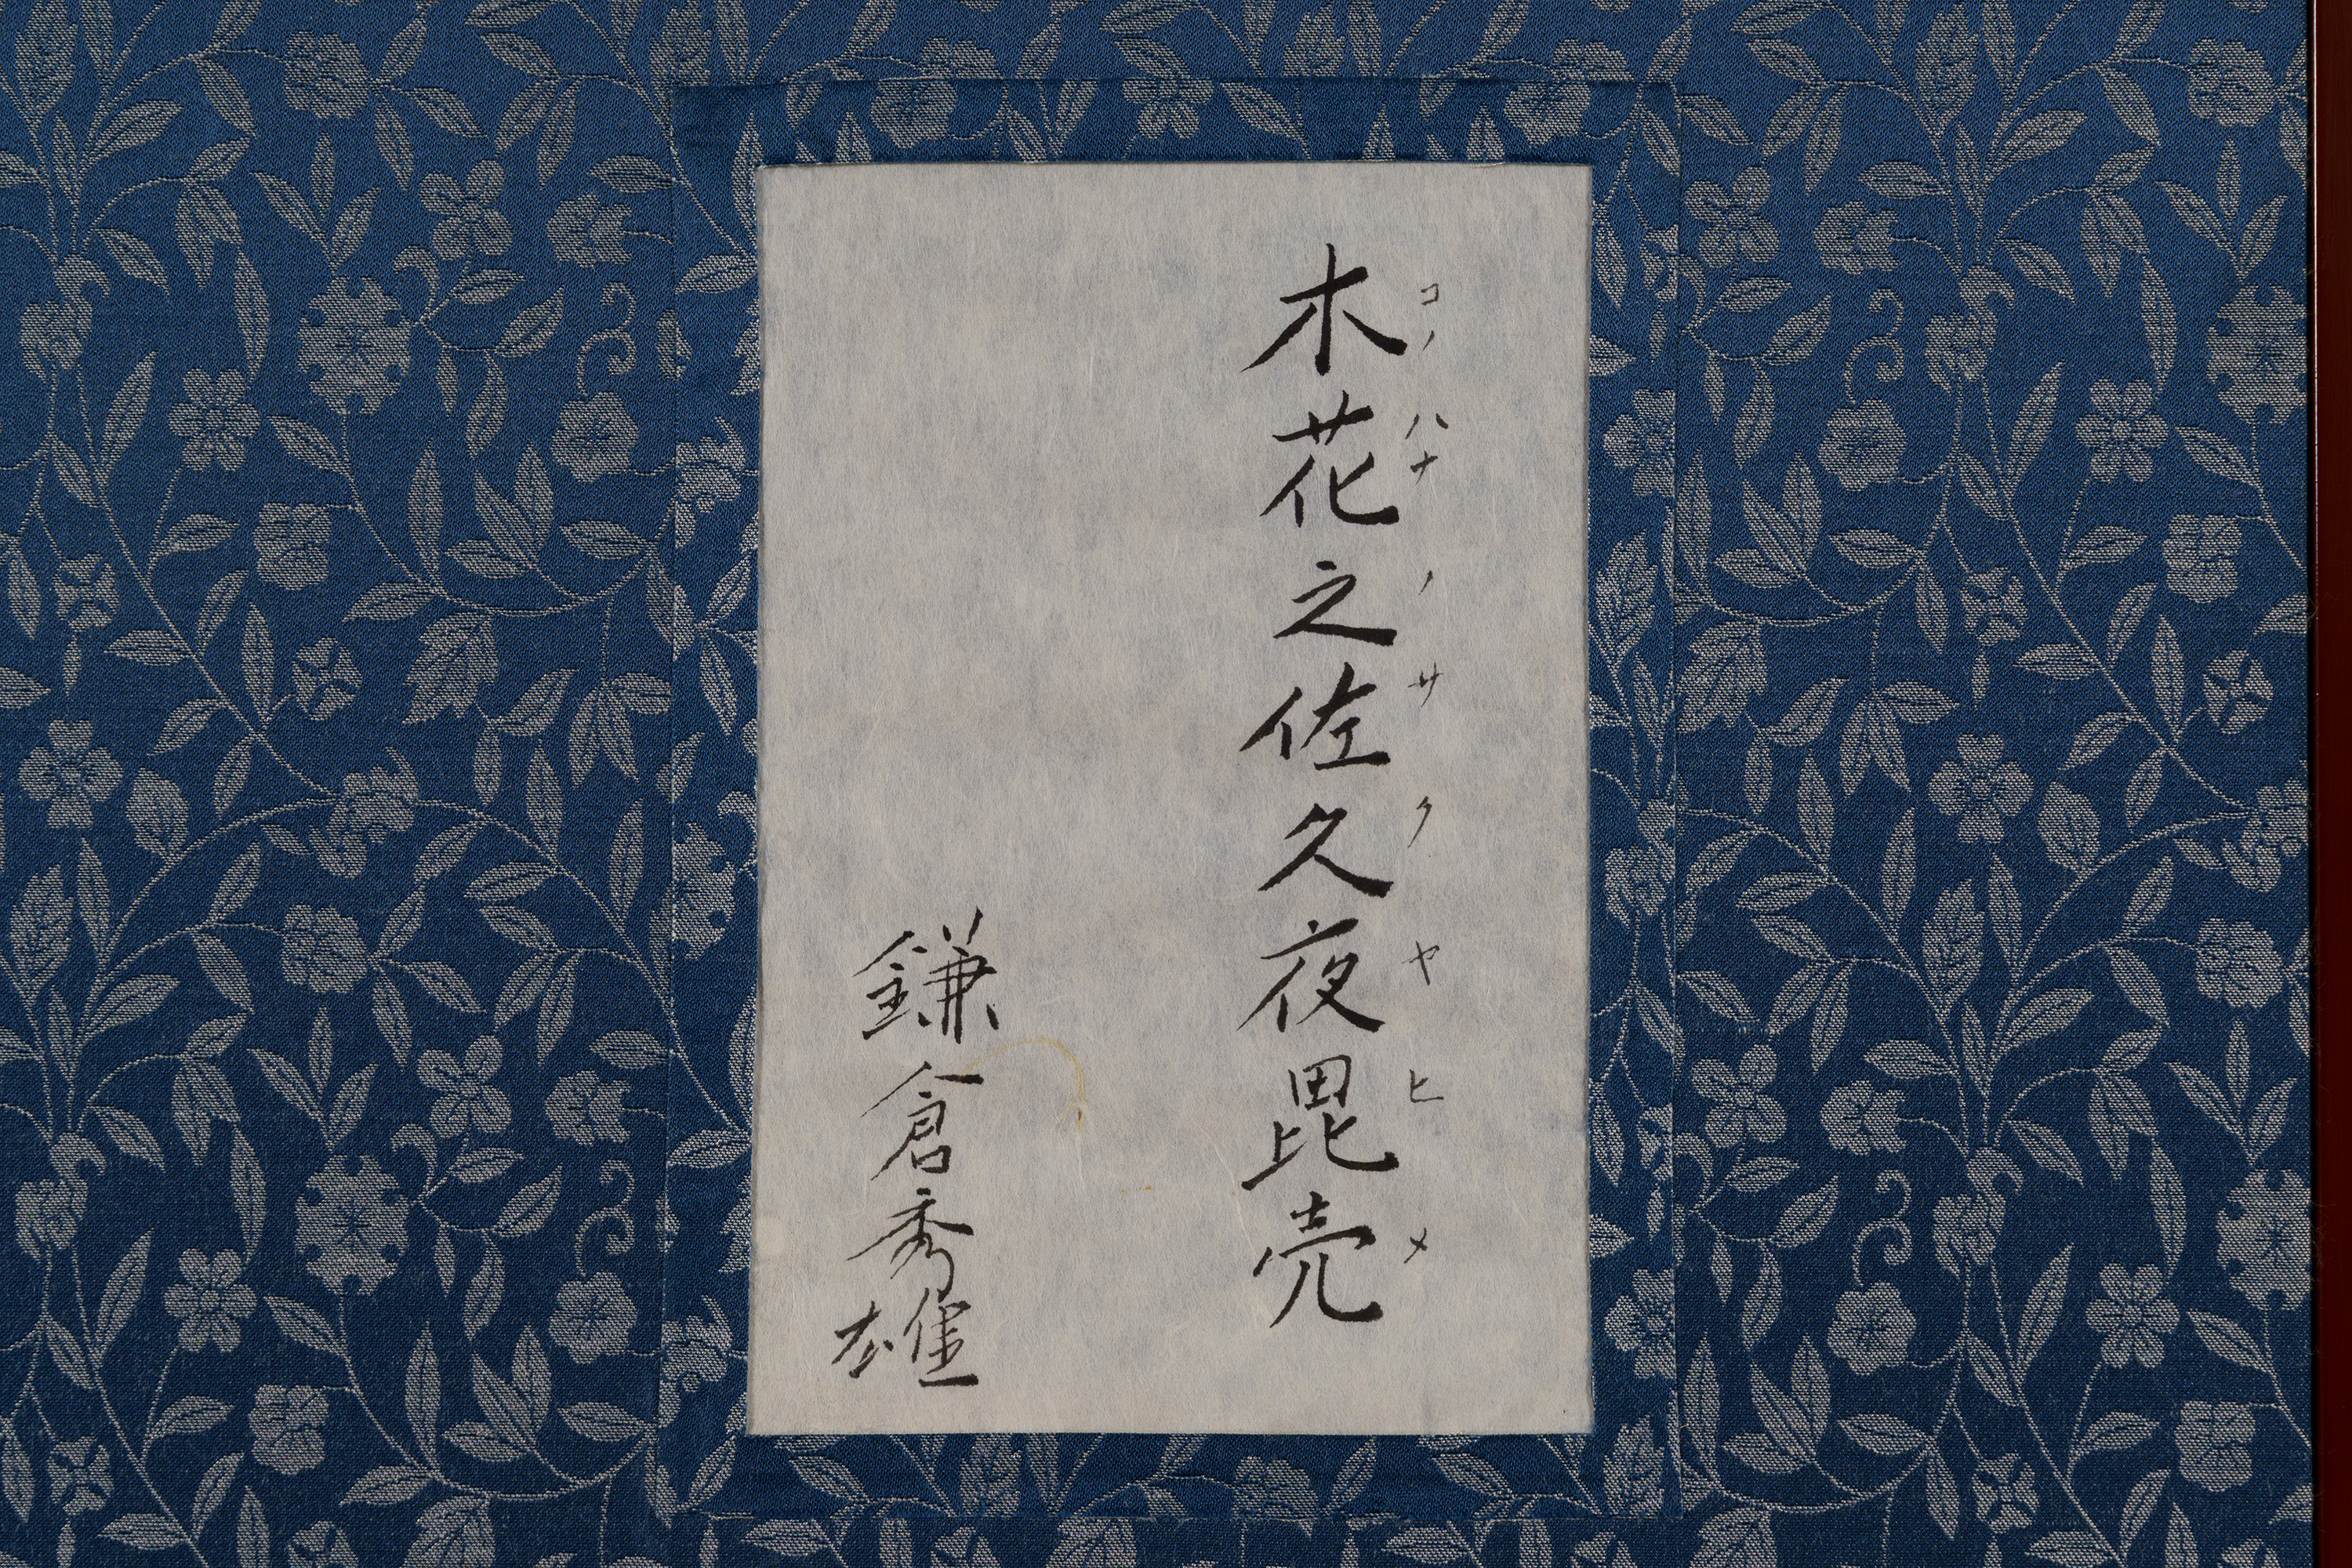 木花之佐久夜毘売
コノハナノサクヤヒメ
鎌倉秀雄